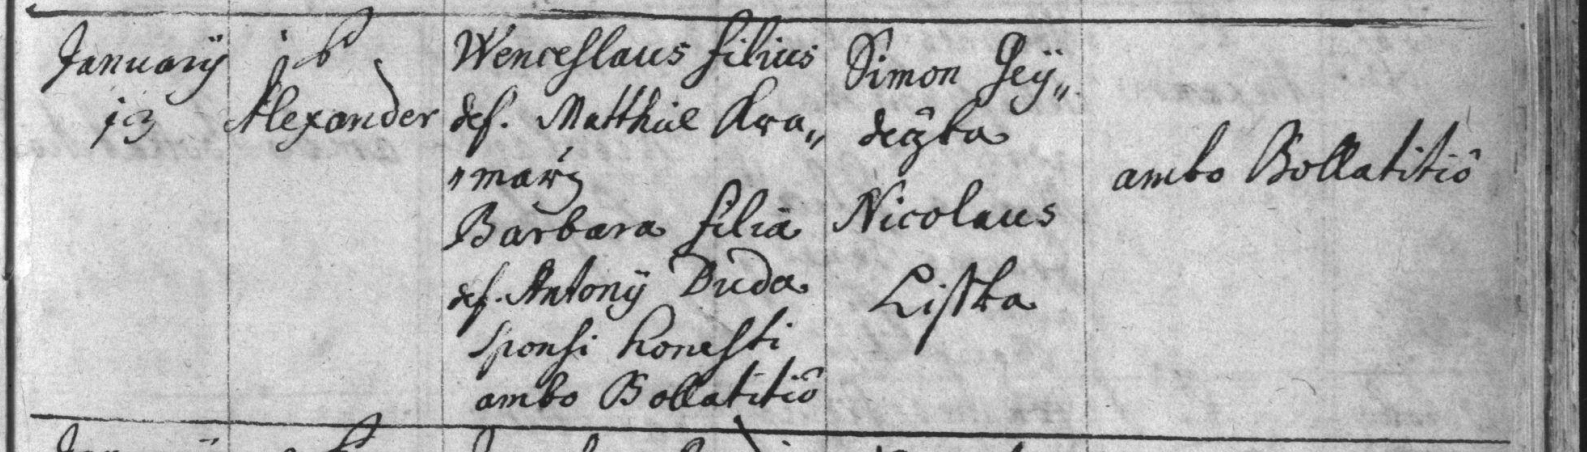 Januarÿ
13
P
Alexander
Wenceslaus filius
def. Matthiæ Kra„
„marź
Barbara filia
def. Antonÿ Duda
sponsi honesti
ambo Bollatitiô
Simon Heÿ„
deczka
Nicolaus
Listka
ambo Bollatitiô